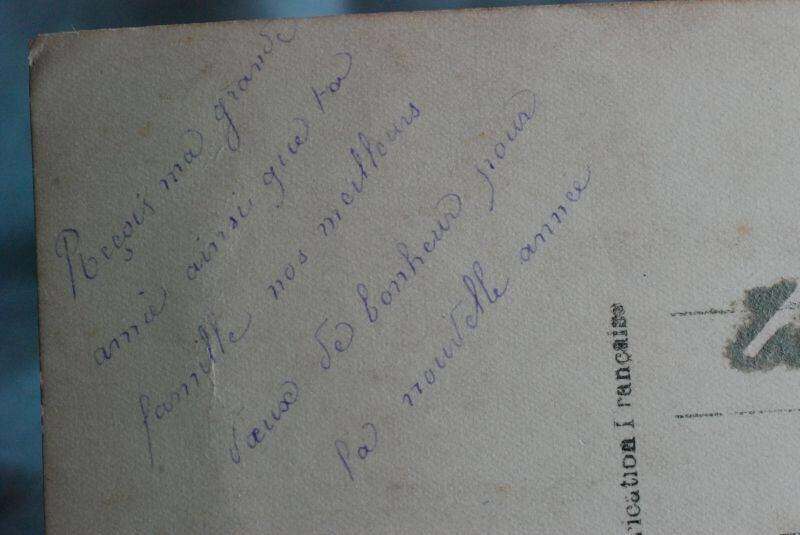 Reçois ma grande
amie ainsi que ta
famille nos meilleurs
vœux de bonheur pour
la nouvelle année
rication Française